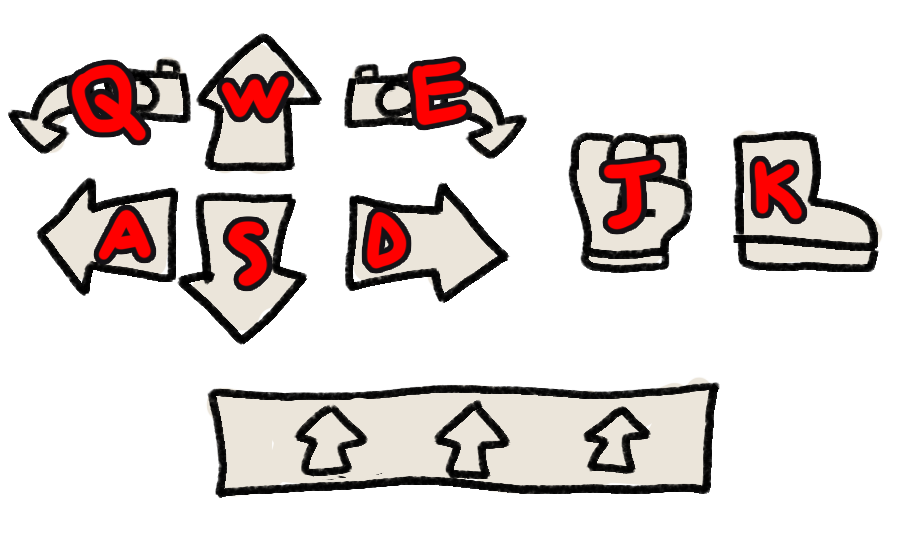 Q W E
A S D J K